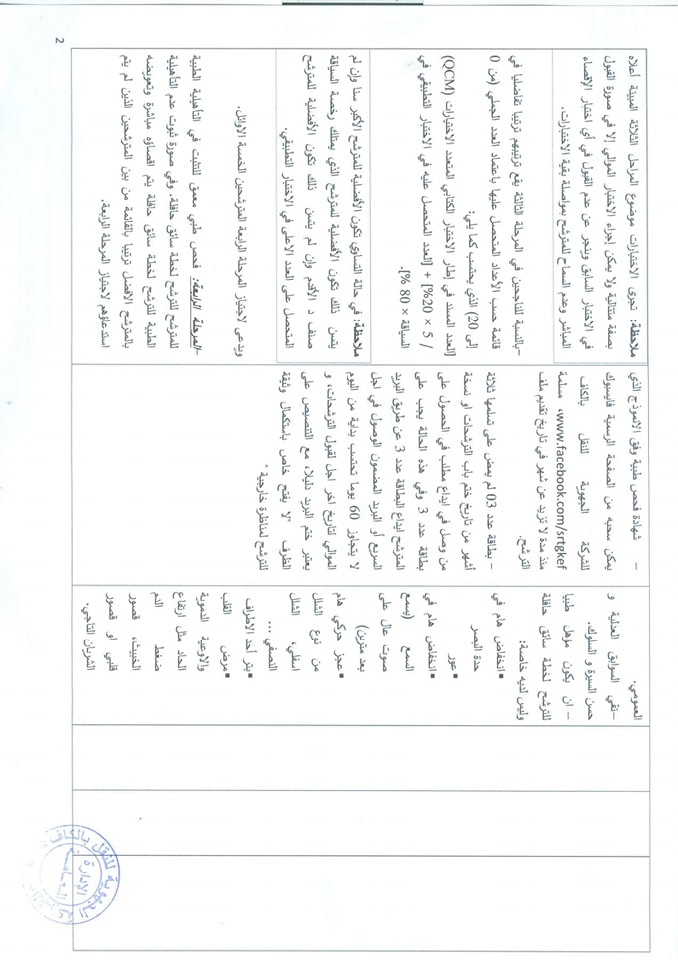 العمومي.
–نقي السوابق العدلية و
حسن السيرة و السلوك.
– ان يكون مؤهل طبيا
للترشح لخطة سائق حافلة
وليس لديه خاصة:
▪ انخفاض هام في
حدة البصر
▪ عور
▪ انخفاض هام في
السمع (سمع
صوت عال على
بعد مترين)
▪ عجز حركي هام
من نوع الشلل
أسفلي، الشلل
النصفي ...
▪ بتر أحد الاطراف
▪ مرض القلب
والاوعية الدموية
الحاد مثل ارتفاع
ضغط الدم
الخبيث، قصور
قلبي او قصور
الشريان التاجي.
– شهادة فحص طبية وفق الانموذج الذي
يمكن سحبه من الصفحة الرسمية فايسبوك
للشركة الجهوية للنقل بالكاف
www.facebook.com/srtgkef، مسلمة
منذ مدة لا تزيد عن شهر في تاريخ تقديم ملف
الترشح.
– بطاقة عدد 03 لم يمض على تسلمها ثلاثة
أشهر من تاريخ ختم باب الترشحات او نسخة
من وصل في ايداع مطلب في الحصول على
بطاقة عدد 3 وفي هذه الحالة يجب على
المترشح ايداع البطاقة عدد 3 عن طريق البريد
السريع أو البريد المضمون الوصول في اجل
لا يتجاوز 60 يوما تحتسب بداية من اليوم
الموالي لتاريخ اخر اجل لقبول الترشحات، و
يعتبر ختم البريد دليلا، مع التنصيص على
الظرف "لا يفتح خاص باستكمال وثيقة
للترشح لمناظرة خارجية"
ملاحظة: تجرى الاختبارات موضوع المراحل الثلاثة المبينة أعلاه
بصفة متتالية ولا يمكن إجراء الاختبار الموالي إلا في صورة القبول
في الاختبار السابق وينجر عن عدم القبول في أي اختبار الإقصاء
المباشر وعدم السماح للمترشح بمواصلة بقية الاختبارات.
–بالنسبة للناجحين في المرحلة الثالثة يقع ترتيبهم ترتيبا تفاضليا في
قائمة حسب الأعداد المتحصل عليها باعتماد العدد الجملي (من 0
إلى 20) الذي يحتسب كما يلي:
[العدد المسند في إطار الاختبار الكتابي المتعدد الاختيارات (QCM)
/ 5 × 20%] + [العدد المتحصل عليه في الاختبار التطبيقي في
السياقة × 80 %].
ملاحظة: في حالة التساوي تكون الأفضلية للمترشح الأكبر سنا وإن لم
يتسن ذلك تكون الأفضلية للمترشح الذي يمتلك رخصة السياقة
صنف د الأقدم وإن لم يتسن ذلك تكون الأفضلية للمترشح
المتحصل على العدد الاعلى في الاختبار التطبيقي.
ويدعى لاجتياز المرحلة الرابعة المترشحين الخمسة الاوائل.
–المرحلة الرابعة: فحص طبي معمق للتثبت في التأهيلية الطبية
للمترشح للترشح لخطة سائق حافلة. وفي صورة ثبوت عدم التأهيلية
الطبية للترشح لخطة سائق حافلة يتم اقصاؤه مباشرة وتعويضه
بالمترشح الافضل ترتيبا بالقائمة من بين المترشحين الذين لم يتم
استدعاؤهم لاجتياز المرحلة الرابعة.
2
الإدارة